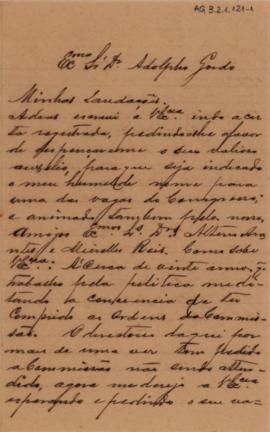 AG 3.2.1.121-1
Exmo Sr Dr. Adolpho Gordo
Minhas Saudações
A dias escrevi á V.Excia. indo a car
ta registrada, pedindo-lhe o favor
de dispensar-me o seu valioso
auxilio, para que seja indicado
o meu humilde nome para
uma das vagas do Congresso,
e animado tambem pelo nosso
Amigos Exmos Srs. Drs. Altino Aran
tes, e Meirelles Reis. Como sabe
V.Excia. A cerca de vinte annos,
trabalho pela politica
tando a consciencia de ter
Cumprido as Ordens da Commis
são. O directorio daqui por
mais de uma ver tem pedido
a Commissão não sendo atten
dido, agora me derejo a V.Excia
esperando e pedindo o seu va-